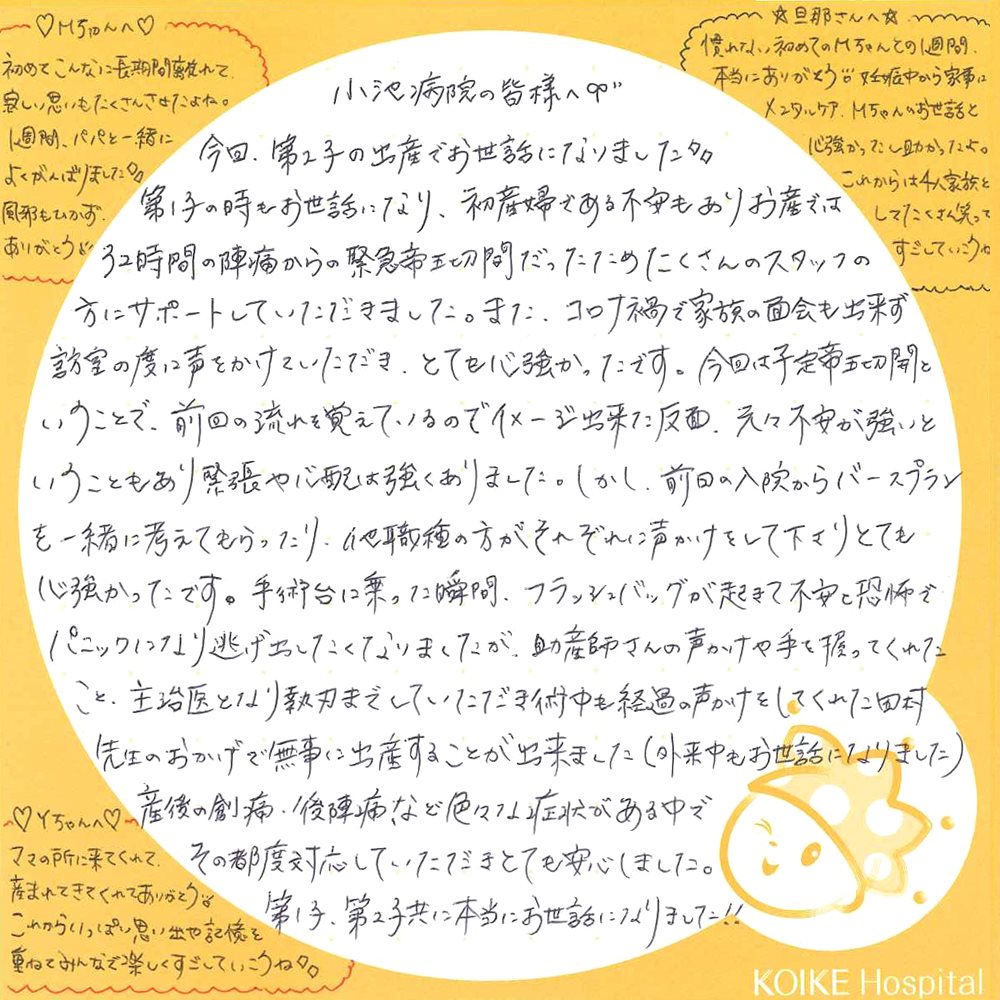 ♡Mちゃんへ♡
初めてこんなに長期間離れて
寂しい思いもたくさんさせたよね。
1週間、パパと一緒に
よくがんばりました
風邪もひかず
ありがとう
☆旦那さんへ☆
慣れない初めてのMちゃんとの1週間、
本当にありがとう 妊娠中から家事に
メンタルケア、Mちゃんのお世話と
心強かったし助かったよ。
これからは4人家族と
してたくさん笑って
すごしていこうね
小池病院の皆様へ
今回、第2子の出産でお世話になりました
第1子の時もお世話になり、初産婦である不安もありお産では
32時間の陣痛からの緊急帝王切開だったためたくさんのスタッフの
方にサポートしていただきました。また、コロナ禍で家族の面会も出来ず
訪室の度に声をかけていただき、とても心強かったです。今回は予定帝王切開と
いうことで、前回の流れを覚えているのでイメージ出来た反面、元々不安が強いと
いうこともあり緊張や心配は強くありました。しかし、前回の入院からバースプラン
を一緒に考えてもらったり、他職種の方がそれぞれに声かけをして下さりとても
心強かったです。手術台に乗った瞬間、フラッシュバックが起きて不安と恐怖で
パニックになり逃げ出したくなりましたが、助産師さんの声かけや手を握ってくれた
こと、主治医となり執刀までしていただき術中も経過の声かけをしてくれた田村
先生のおかげで無事に出産することが出来ました(外来中もお世話になりました)
産後の創痛・後陣痛など色々な症状がある中で
その都度対応していただきとても安心しました。
第1子、第2子共に本当にお世話になりました!!
♡Yちゃんへ♡
ママの所に来てくれて、
産まれてきてくれてありがとう
これからいっぱい思い出や記憶を
重ねてみんなで楽しくすごしていこうね
KOIKE Hospital